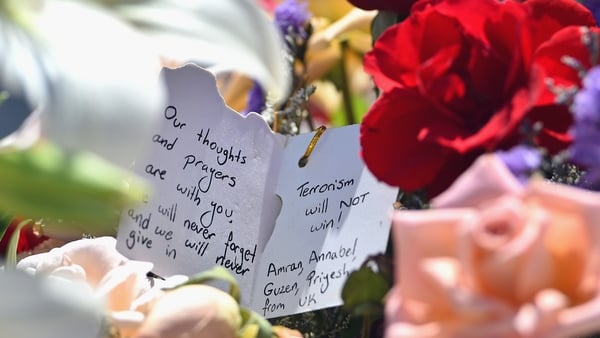 Our thoughts
and prayers
are with you.
We will never forget
and we will never
give in
Terrorism
will NOT
win!
Amran, Annabel,
Guzen, Priyesh,
from UK